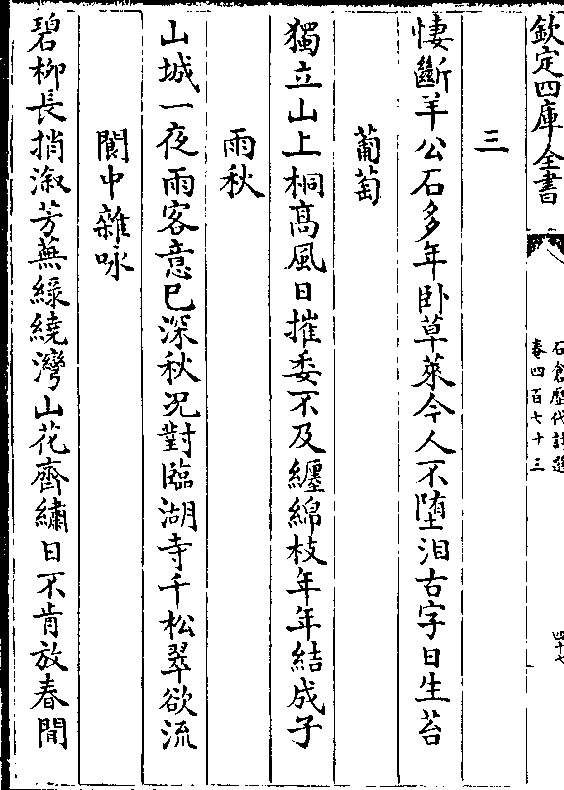 欽定四庫全書
石倉歷代詩選
卷四百七十三
四十七
三
悽斷羊公石多年卧草萊今人不墮淚古字日生苔
葡萄
獨立山上桐高風日摧委不及纏綿枝年年結成子
雨秋
山城一夜雨客意已深秋况對臨湖寺千松翠欲流
閬中雜咏
碧柳長捎溆芳蕪綠繞灣山花齊繡日不肯放春閒